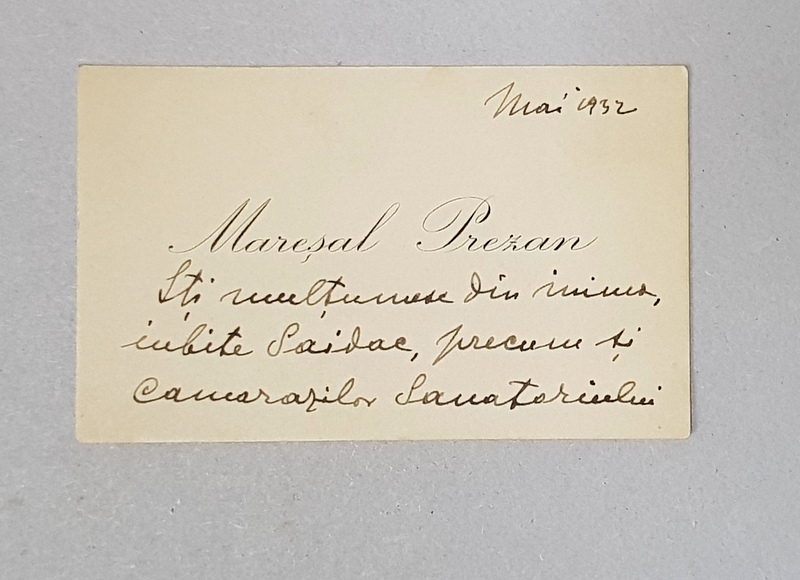 Mai 1932
Mareșal Prezan
Îți mulțumesc din inimă,
iubite Saidac, precum și
Camarazilor Sanatoriului